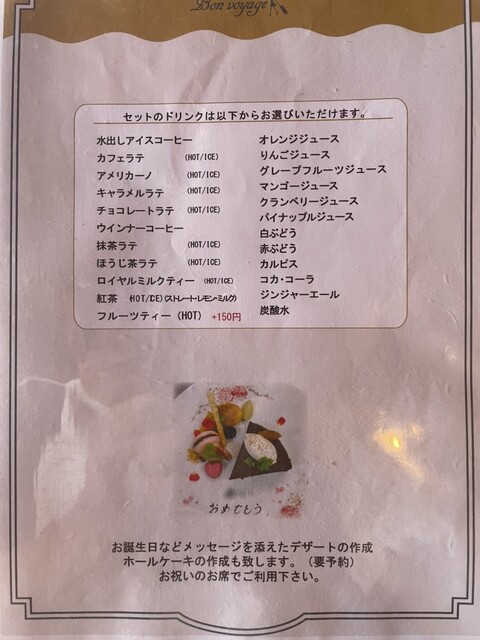 Bon voyage
セットのドリンクは以下からお選びいただけます。
水出しアイスコーヒー
カフェラテ (HOT/ICE)
アメリカーノ (HOT/ICE)
キャラメルラテ (HOT/ICE)
チョコレートラテ (HOT/ICE)
ウインナーコーヒー
抹茶ラテ (HOT/ICE)
ほうじ茶ラテ (HOT/ICE)
ロイヤルミルクティー (HOT/ICE)
紅茶 (HOT/ICE)(ストレート・レモン・ミルク)
フルーツティー(HOT) +150円
オレンジジュース
りんごジュース
グレープフルーツジュース
マンゴージュース
クランベリージュース
パイナップルジュース
白ぶどう
赤ぶどう
カルピス
コカ・コーラ
ジンジャーエール
炭酸水
おめでとう
お誕生日などメッセージを添えたデザートの作成
ホールケーキの作成も致します。(要予約)
お祝いのお席でご利用下さい。